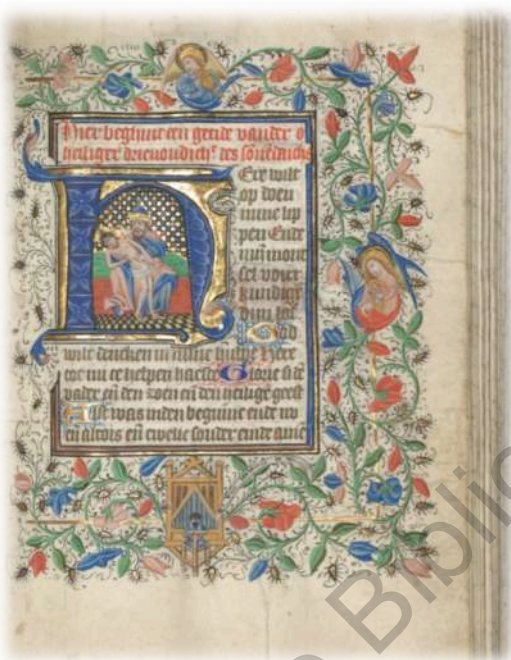 Hier beghint een getide vander o
heiliger drievoudich^t des sonnendachs
Ere wilt
op doen
mine lip
pen Ende
mijn mont
sel voirt
kundige
dijn lof
God
wilt dencken in mine hulpe Here
tot mi te helpen haeste Glorie si dē
vader eñ den zoen eñ den heilige geest
Alst was inden beghinne ende nv
eñ altois eñ ewelic sonder einde amē
Biblio